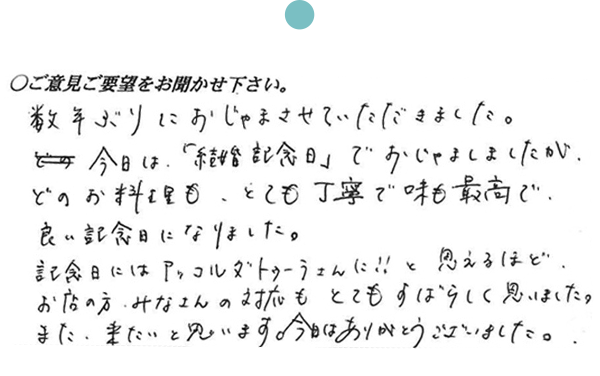 ○ご意見ご要望をお聞かせ下さい。
数年ぶりにおじゃまさせていただきました。
今日は、「結婚記念日」でおじゃましましたが、
どのお料理も、とても丁寧で味も最高で、
良い記念日になりました。
記念日にはアッコルダトゥーラさんに!!と思えるほど、
お店の方、みなさんの対応もとてもすばらしく思いました。
また、来たいと思います。今日はありがとうございました。